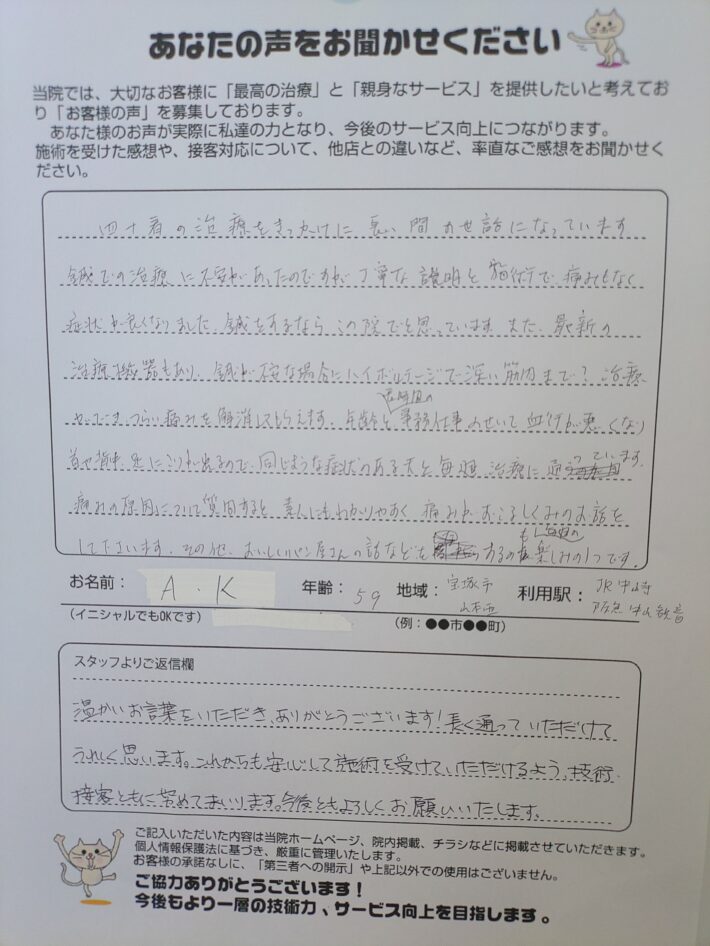 あなたの声をお聞かせください
当院では、大切なお客様に「最高の治療」と「親身なサービス」を提供したいと考えてお
り「お客様の声」を募集しております。
あなた様のお声が実際に私達の力となり、今後のサービス向上につながります。
施術を受けた感想や、接客対応について、他店との違いなど、率直なご感想をお聞かせく
ださい。
四十肩の治療をきっかけに長い間お世話になっています
鍼での治療に不安があったのですが丁寧な説明と施術で痛みもなく
症状が良くなりました。鍼をするならこの院でと思っています。また、最新の
治療機器もあり、鍼が不安な場合にハイボルテージで深い筋肉まで?治療
つらい痛みを解消してもらえます。年齢と長時間の事務仕事のせいで血行が悪くなり
首や背中、足にこりが出るので、同じような症状のある夫と毎週治療に通っています。
痛みの原因について質問すると、素人にもわかりやすく痛みがおこるしくみのお話を
して下さいます。その他、おいしいパン屋さんの話などもあるのも楽しみの1つです。
お名前: A.K 年齢: 59 地域: 宝塚市 利用駅: JR中山寺
阪急 中山観音
(イニシャルでもOKです) (例:●●市●●町)
スタッフよりご返信欄
温かいお言葉をいただき、ありがとうございます!長く通っていただけて
うれしく思います。これからも安心して施術を受けていただけるよう、技術・
接客ともに努めてまいります。今後ともよろしくお願いいたします。
ご記入いただいた内容は当院ホームページ、院内掲載、チラシなどに掲載させていただきます。
個人情報保護法に基づき、厳重に管理いたします。
お客様の承諾なしに、「第三者への開示」や上記以外での使用はございません。
ご協力ありがとうございます!
今後もより一層の技術力、サービス向上を目指します。